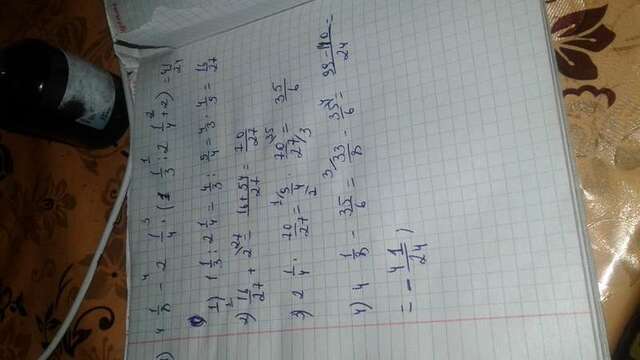 4 1/8 - 2 1/4 · (1 1/3 : 2 1/4 + 2) = 41/24
1) 1 1/3 : 2 1/4 = 4/3 : 9/4 = 4/3 · 4/9 = 16/27
2) 16/27 + 2 = 16+54/27 = 70/27
3) 2 1/4 · 70/27 = 9/4 · 70/27 = 35/6
4) 4 1/8 - 35/6 = 33/8 - 35/6 = 99-140/24 =
= - 41/24 ;